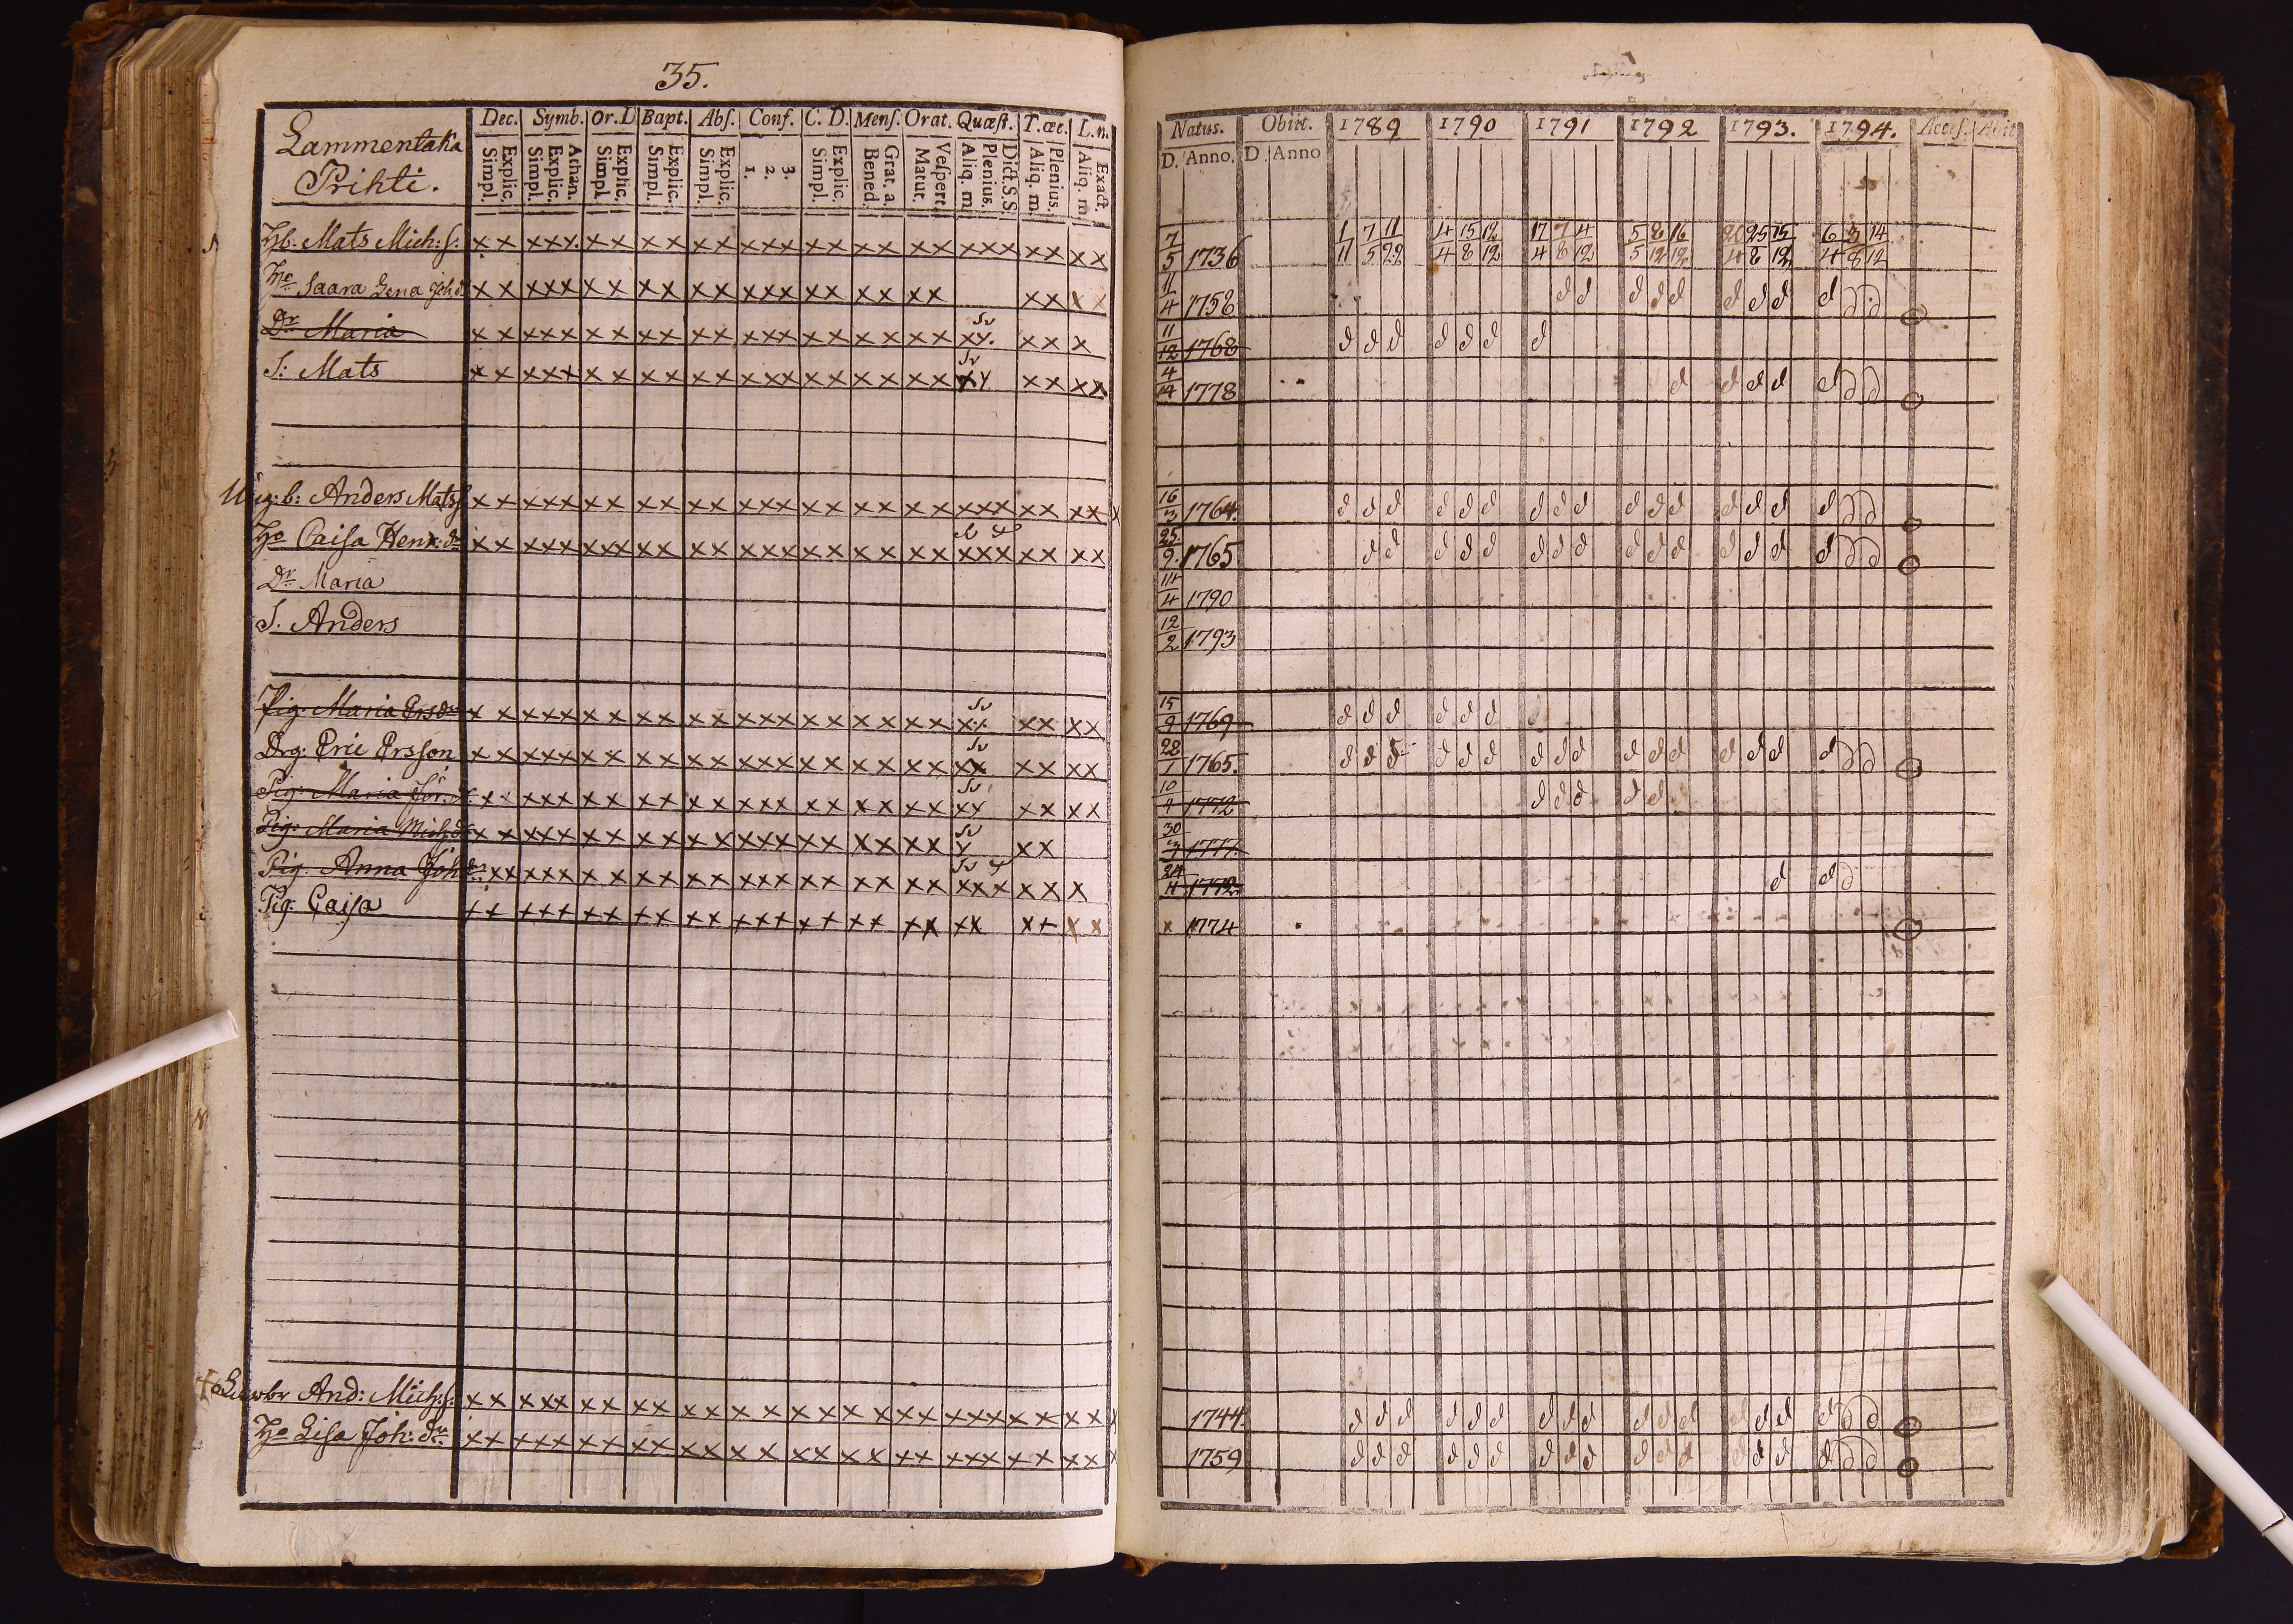 35.
Lammentaka
Prihti.
Dec. Symb. Or. D Bapt. Abſ. Conf. C. D. Menſ. Orat. Quæſt. T. æt. L. n.
Explic. Simpl. Athan. Explic. Simpl. Explic. Simpl. Explic. Simpl. Explic. Simpl. 3. 2. 1. Explic. Simpl. Grat. a Bened. Veſpert. Matut. Dict. S. S. Plenius. Aliq. m. Plenius. Aliq. m. Exact. Aliq. m.
Natus. Obiit. 1789 1790 1791 1792 1793. 1794. Acceſ. Abiit
D. Anno. D. Anno
Hb. Mats Mich: s: 7/5 1736
1/11 7/5 11/22 4/4 15/8 12/12 17/4 7/8 4/12 5/5 8/12 16/12 20/4 25/8 15/12 6/4 3/8 14/12
Ho Saara Lena Joh d. 11/4 1758
Dr Maria 11/12 1768
S: Mats 4/14 1778
b: Anders Mats s 16/3 1764.
Ho Caisa Henr: dr 25/9. 1765
Dr Maria 14/4 1790
S. Anders 12/2 1793
Pig. Maria Ersdr 15/9 1769
Drg: Eric Ersson 28/1 1765.
Pig: Maria Jör. dr 10/4 1772
Pig: Maria Mich. dr 30/3 1777.
Pig. Anna Joh dr 24/11 1772
Pig. Caisa x 1774
And: Mich: s: 1744
Ho Lisa Joh: dr 1759